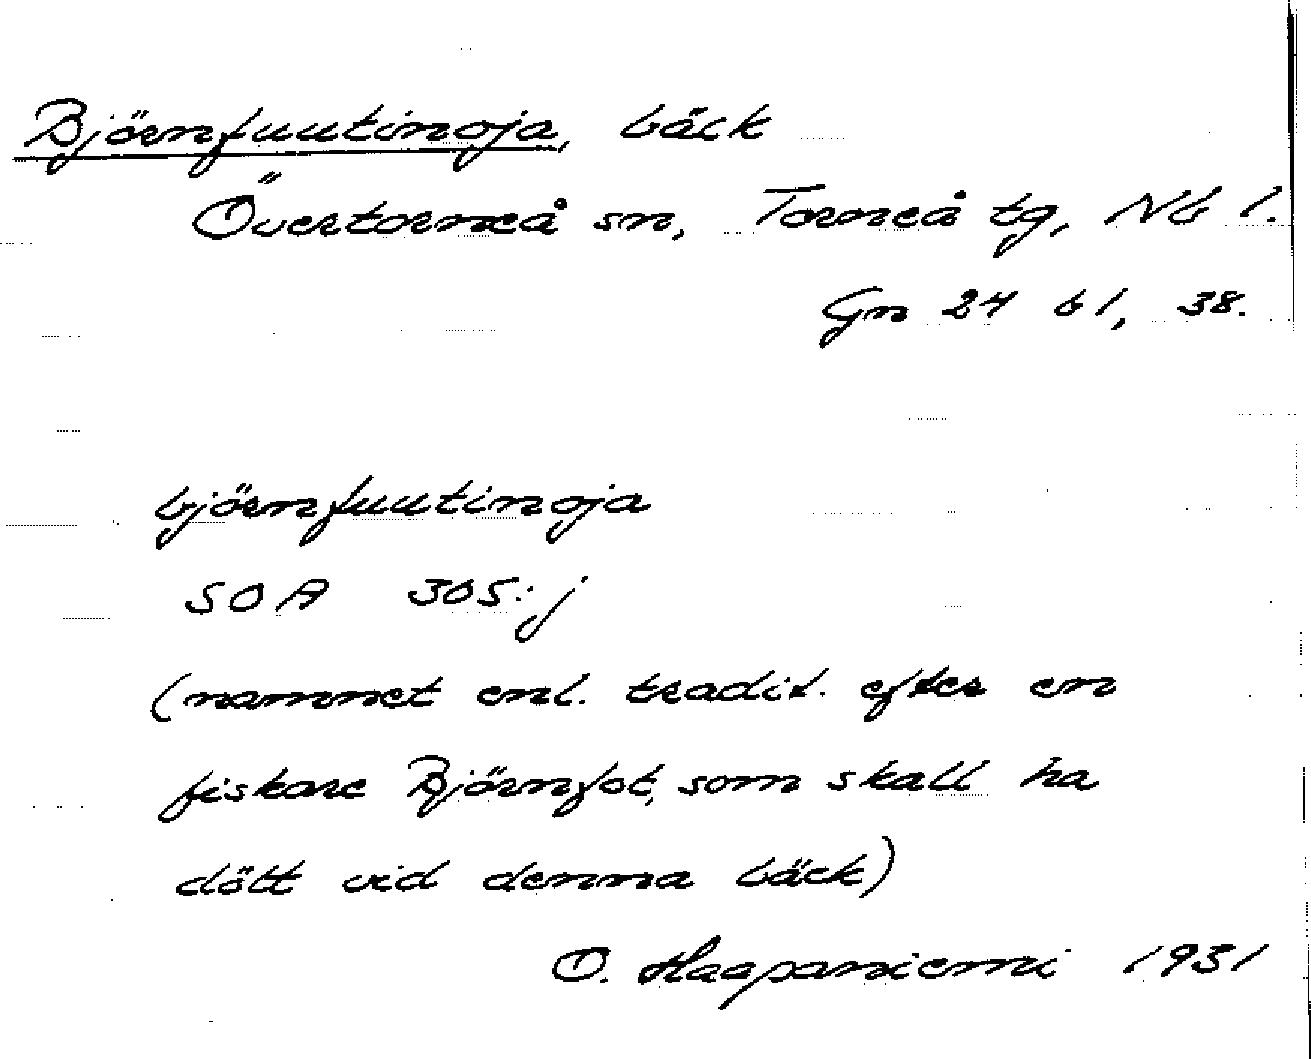 Björnfuutinoja, bäck
Övertorneå sn, Torneå tg, Nb l.
Gn 24 b1, 38.
björnfuutinoja
SOA 305:j
(namnet enl. tradit. efter en
fiskare Björnfot, som skall ha
dött vid denna bäck)
O. Haapaniemi 1931